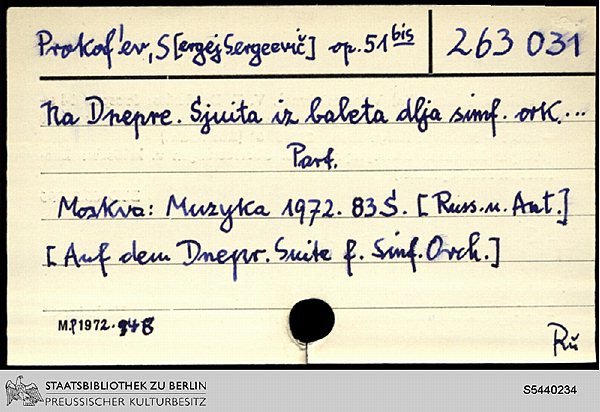 Prokof'ev, S[ergej Sergeevič] op. 51 bis 263 031
Na Dnepre. Sjuita iz baleta dlja simf. ork. ...
Part.
Moskva: Muzyka 1972. 83 S. [Russ. u.
[Auf dem Dnepr. Suite f. Sinf. Orch.]
M.P 1972.
Rů
STAATSBIBLIOTHEK ZU BERLIN
PREUSSISCHER KULTURBESITZ
S5440234